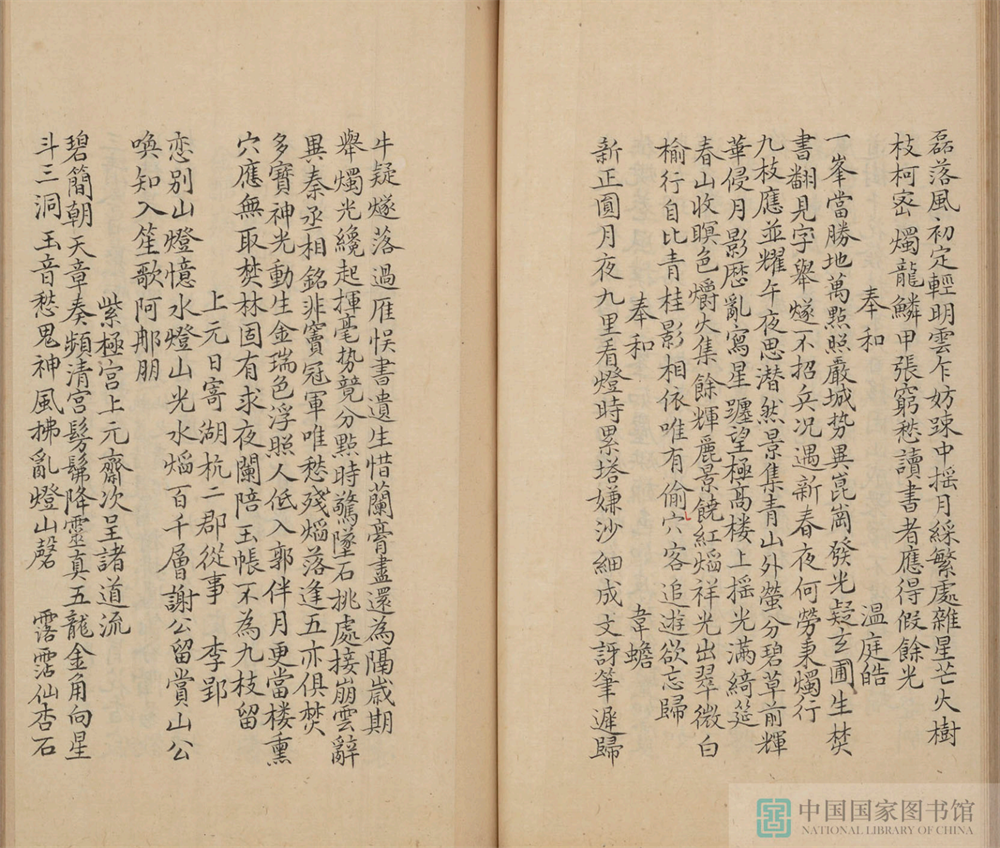 磊落風初定輕明雲乍妨踈中摇月綵繁處雜星芒火樹
枝柯密燭龍鱗甲張窮愁讀書者應得假餘光
奉和　温庭皓
一峯當勝地萬點照嚴城势異崑崗發光疑玄圃生焚
書翻見字舉燧不招兵况遇新春夜何勞秉燭行
九枝應並耀午夜思潜然景集青山外螢分碧草前輝
華侵月影歴亂寫星躔望極高楼上摇光滿綺筵
春山收暝色爝火集餘輝麗景饒紅焰祥光出翠微白
榆行自比青桂影相依唯有偷穴客追遊欲忘歸
奉和　韋蟾
新正圓月夜九里看燈時累塔嫌沙細成文訝筆遲歸
牛疑燧落過雁悮書遺生惜蘭膏盡還為隔歲期
舉燭光纔起揮毫势竟分點時驚墜石挑處接崩雲辭
異秦丞相銘非竇冠軍唯愁殘焰落逢五亦俱焚
多寶神光動生金瑞色浮照人低入郭伴月更當楼熏
穴應無取焚林固有求夜闌陪玉帳不為九枝留
上元日寄湖杭二郡從事　李郢
恋别山燈憶水燈山光水焰百千層謝公留賞山公
喚知入笙歌阿那朋
紫極宫上元齋次呈諸道流
碧簡朝天章奏頻清宫髣髴降靈真五龍金角向星
斗三洞玉音愁鬼神風拂亂燈山磬　霑仙杏石
中国国家图书馆
NATIONAL LIBRARY OF CHINA